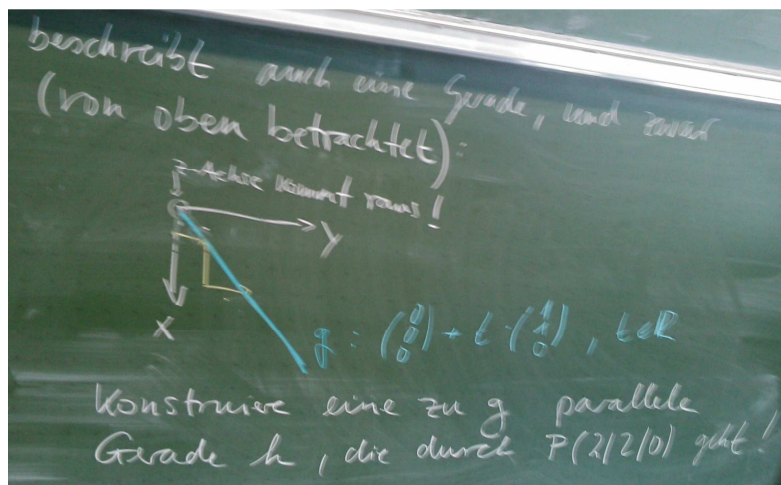 beschreibt auch eine Gerade, und zwar
(von oben betrachtet):
z-Achse kommt raus!
Y
X
g: (0 0 0) + t · (1 1 0), t∈ℝ
Konstruiere eine zu g parallele
Gerade h, die durch P(2/2/0) geht!